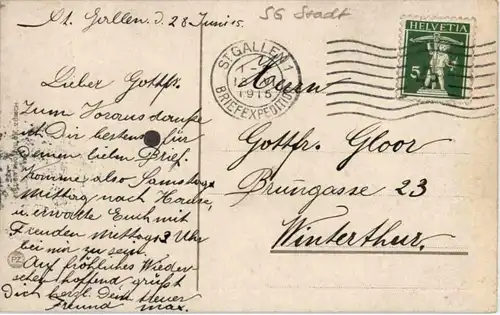 St. Gallen, d. 28 Juni 15.
SG Stadt
HELVETIA
5
ST GALLEN 1
1915
BRIEFEXPEDITION
Lieber Gottfr.
Zum Voraus danke
ich Dir bestens für
Deinen lieben Brief.
Komme also Samstag
Mittag nach Hause,
u. erwarte Euch mit
Freuden Mittags 3 Uhr
bei mir zu sein.
Auf fröhliches Wieder-
sehen hoffend grüsst
Dich herzl. Dein treuer
Freund Max.
Herrn
Gottfr. Gloor
Brunngasse 23
Winterthur.
PZ